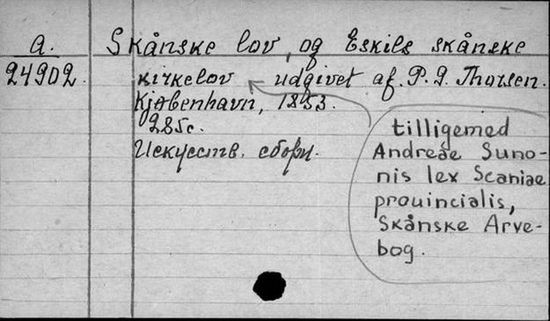 a.
24902.
Skånske lov, og Eskils skånske
kirkelov udgivet af P. G. Thorsen.
Kjøbenhavn, 1853.
285c.
Искусств. сборн.
tilligemed
Andreae Suno-
nis lex Scaniae
prouincialis,
Skånske Arve-
bog.